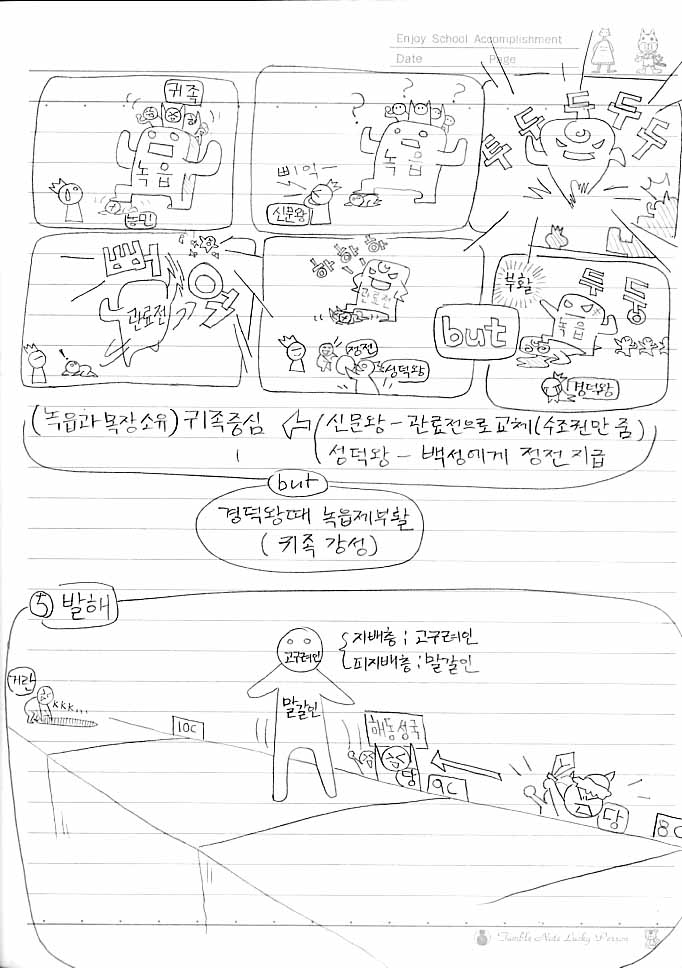 Enjoy School Accomplishment
Date Page
귀족
녹읍
농민
? ? ? ?
녹읍
삐익-
신문왕
두두두두두
빡
억
관료전
하하하
관료전
정전
성덕왕
but
부활
두둥
녹읍
경덕왕
(녹읍과 목장소유) 귀족중심
신문왕 - 관료전으로 교체(수조권만 줌)
성덕왕 - 백성에게 정전지급
but
경덕왕때 녹읍제부활
(귀족 강성)
⑤ 발해
고구려인
지배층 ; 고구려인
피지배층 ; 말갈인
말갈인
거란
KKK...
10C
해동성국
당
9C
당
8C
Tumble Note Lucky Person